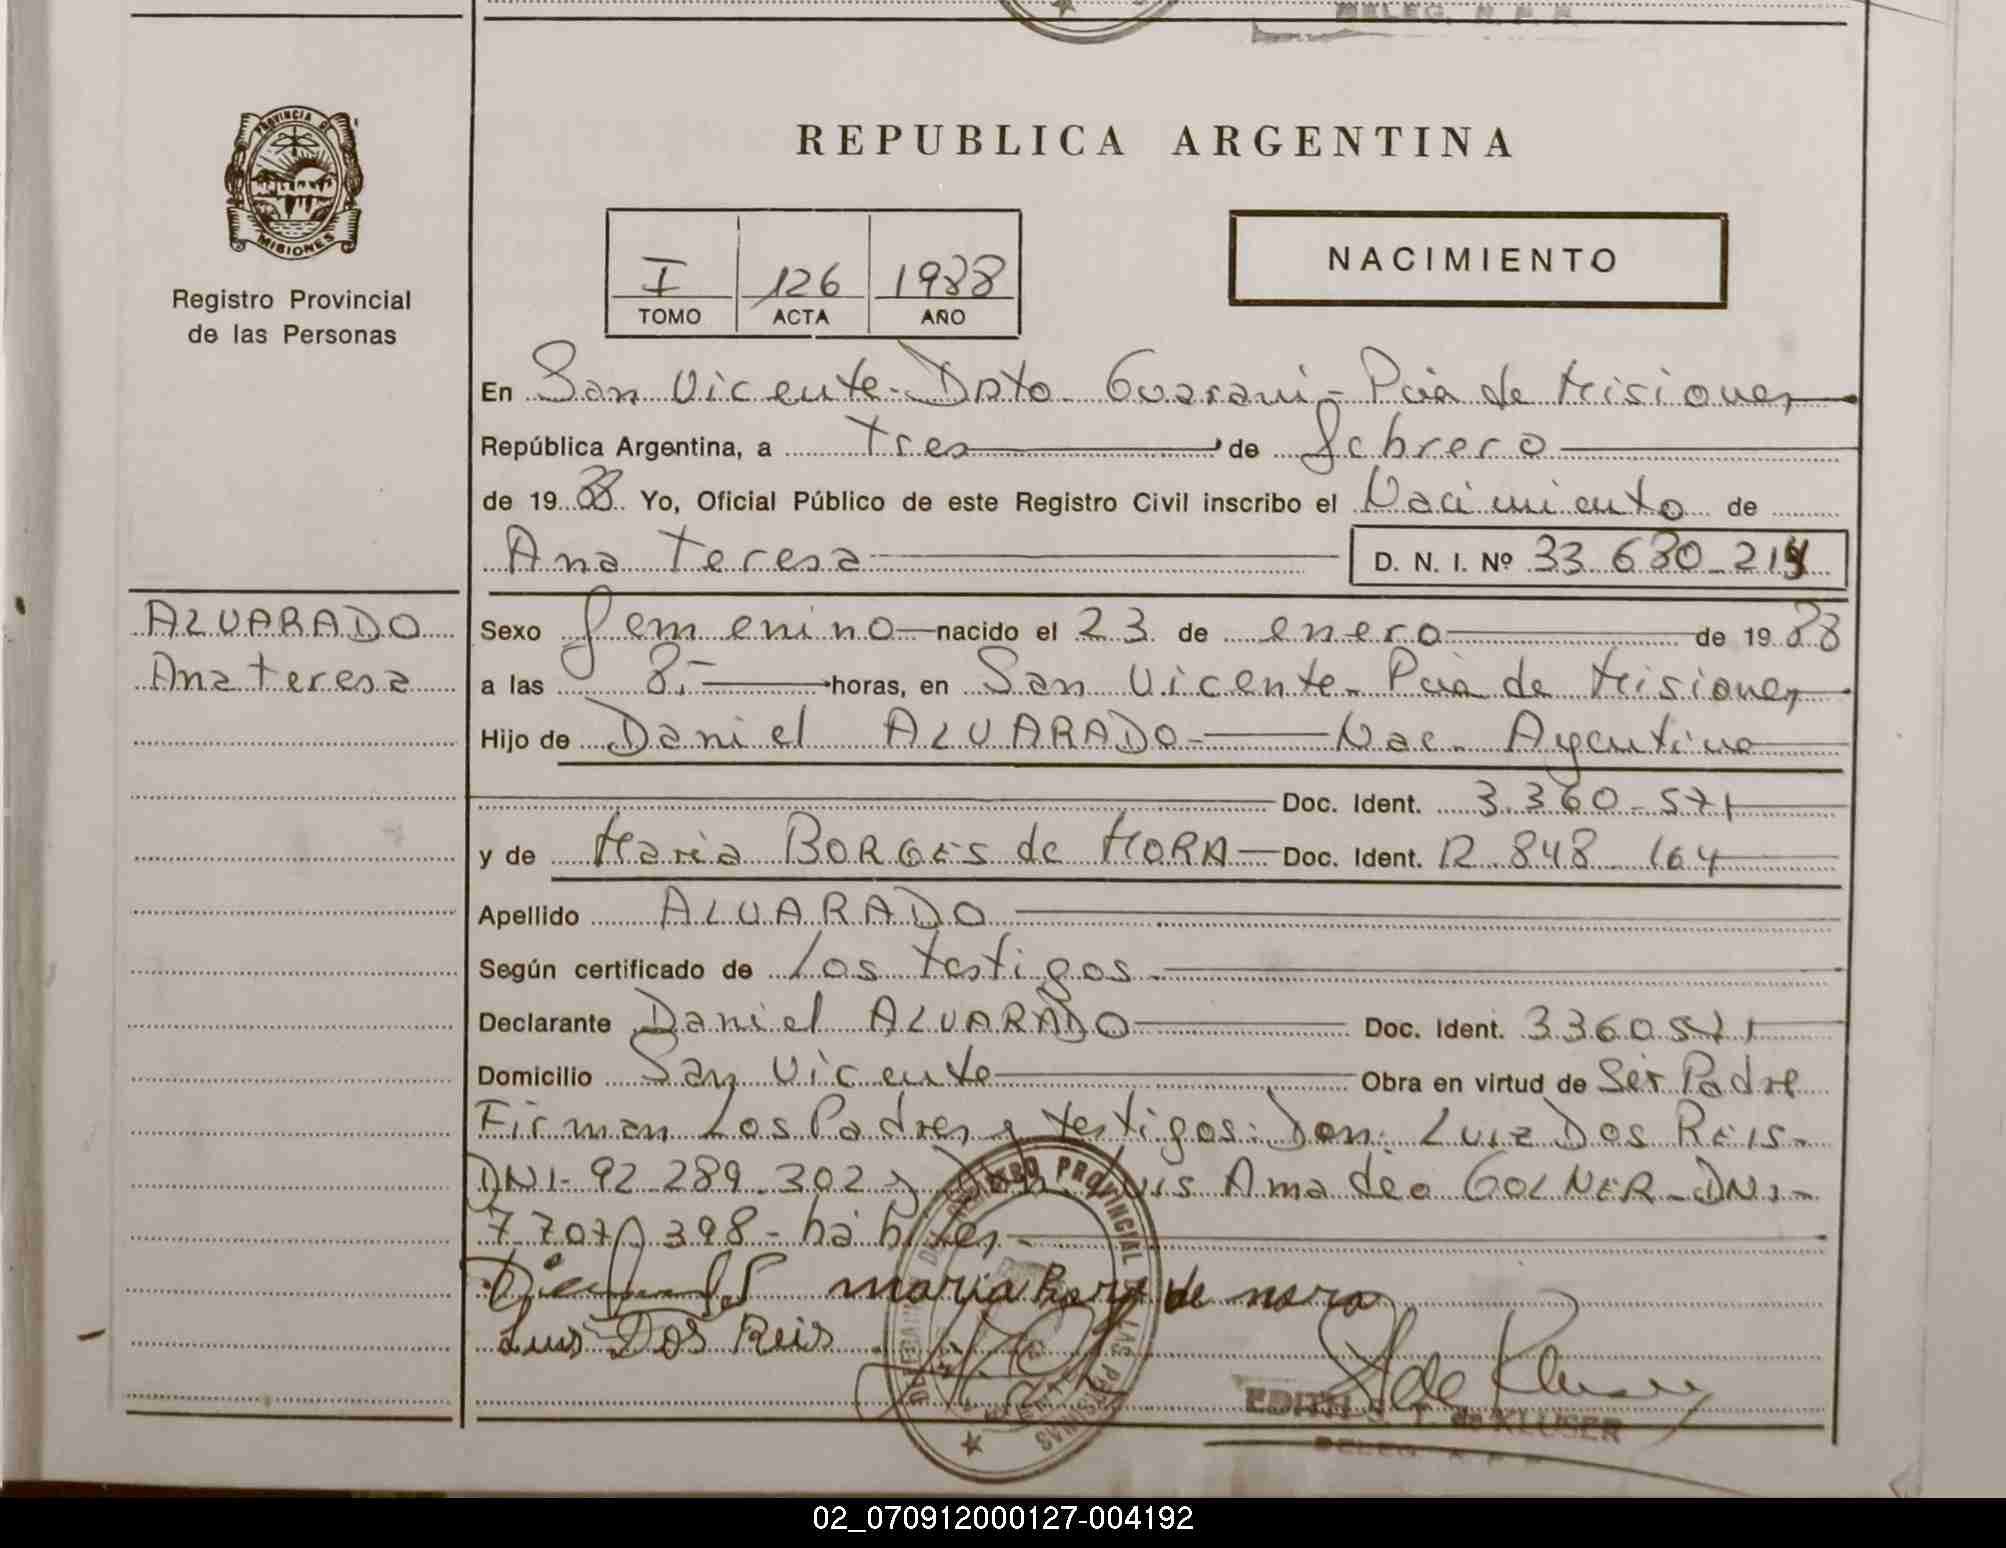 DELEG. R. P. P.
PROVINCIA DE
MISIONES
Registro Provincial
de las Personas
REPUBLICA ARGENTINA
I 126 1988
TOMO ACTA AÑO
NACIMIENTO
En San Vicente-Dpto Guarani-Pcia de Misiones
República Argentina, a tres de febrero
de 1988 Yo, Oficial Público de este Registro Civil inscribo el Nacimiento de
Ana Teresa D. N. I. Nº 33.630.214
ALVARADO
Ana Teresa
Sexo femenino nacido el 23 de enero de 1988
a las 8.- horas, en San Vicente-Pcia de Misiones
Hijo de Daniel ALVARADO- Nac- Argentina
Doc. Ident. 3.360.571
y de Maria BORGES de MORA Doc. Ident. R.848.164
Apellido ALVARADO
Según certificado de los testigos
Declarante Daniel ALVARADO Doc. Ident. 3360571
Domicilio San Vicente Obra en virtud de Ser Padre
Firman Los Padres y testigos: Don: LUIZ DOS REIS-
DNI-92.289.302 y Don Luis Amadeo GOLNER-DNI-
7.707.398- hábiles-
maria Borg de mora
Luis Dos Reis
DELEGACION DEL REGISTRO PROVINCIAL DE LAS PERSONAS
EDITH S. T. de KLUSER
DELEG. R. P. P.
02_070912000127-004192